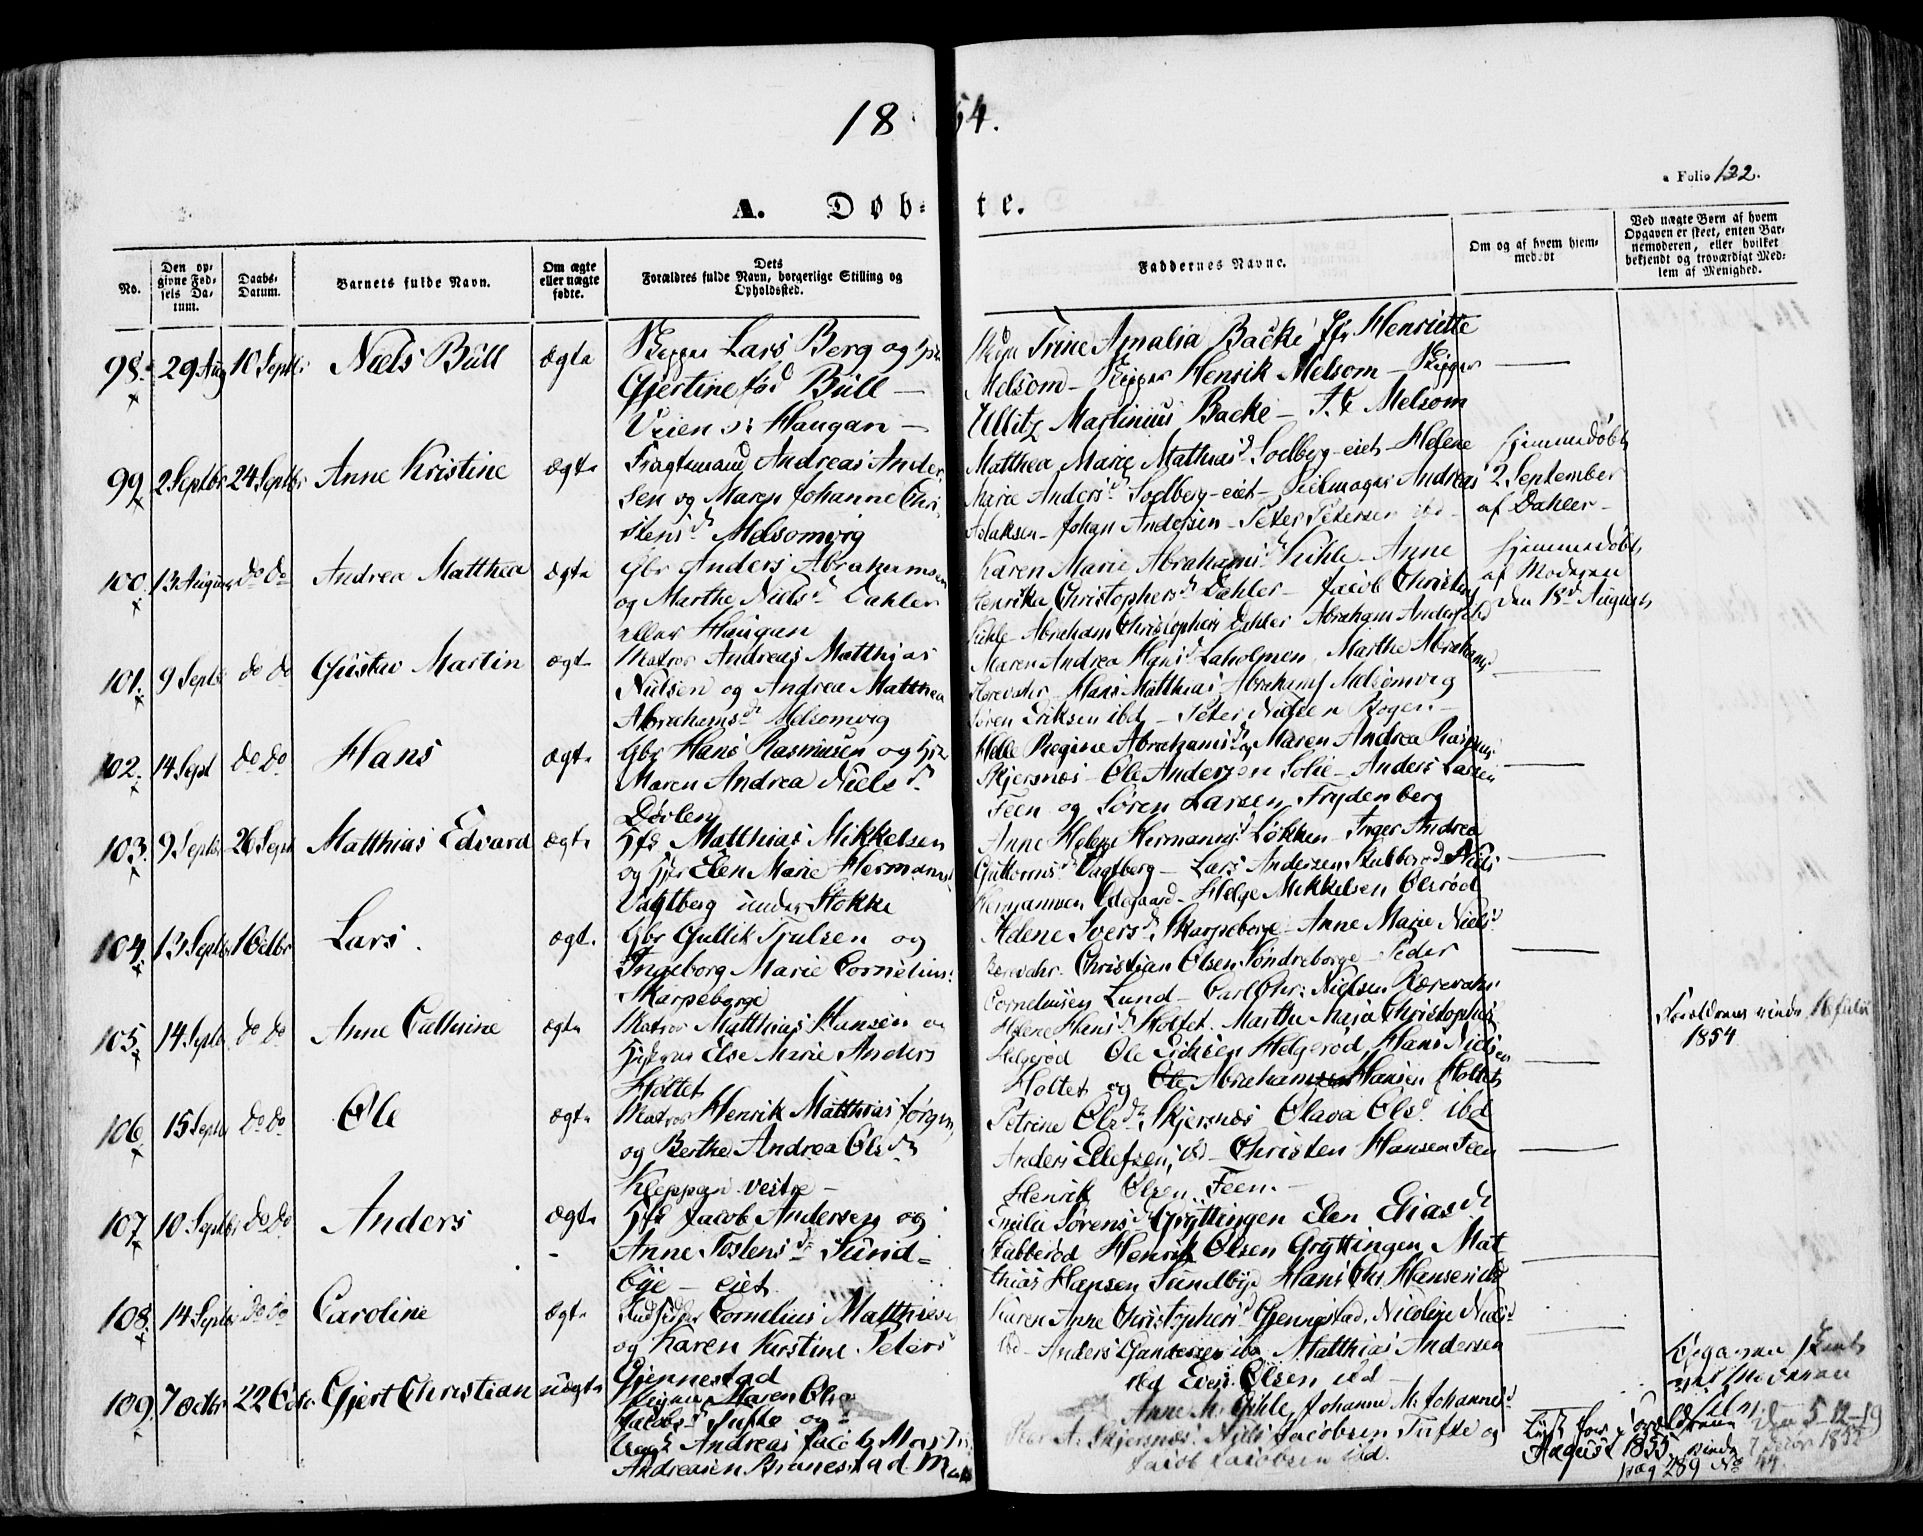 18 54.
a Folio 132.
A. Døb- te.
No.
Den op-
givne Fød-
sels Da-
tum.
Daabs-
Datum.
Barnets fulde Navn.
Om ægte
eller uægte
fødte.
Dets
Forældres fulde Navn, borgerlige Stilling og
Opholdssted.
Faddernes Navne.
Om og af hvem hjem-
medøbt
Ved uægte Børn af hvem
Opgaven er skeet, enten Bar-
nemoderen, eller hvilket
bekjendt og troværdigt Med-
lem af Menighed.
98. 29 Aug 10 Septbr Niels Bull ægte
Skipper Lars Berg og Hu
Gjertine fød Bull —
Veien v: Haugan —
Trine Amalia Backe Jfr Henriette
Melsom — Skipper Henrik Melsom — Skipper
Ullitz Martinius Backe — Melsom
99 2 Septbr 24 Septbr Anne Kristine ægte
Fragtemand Andreas Ander-
sen og Maren Johanne Chri-
stensd Melsomvig
Matthea Marie Mathiasd Sodberg-eiet Helene
Marie Andersd Sodberg-eiet Seilmager Andreas
Aslaksen — Johan Andersen — Peter Petersen ibd —
Hjemmedøbt
2 September
af Dahler —
100. 13 August do do Andrea Matthea ægte
Gbr Anders Abrahamsen
og Marthe Nielsd Dahler
eller Haugan
Karen Marie Abrahamsd Pihle Anne
Henrika Christophersd Dahler — Jacob Christen
Pihle — Abraham Christophers Dahler Abraham Anders ibd
Hjemmedøbt
af Moderen
den 15d August
101. 9 Septbr do do Gustav Martin ægte
Matros Andreas Matthias
Nielsen og Andrea Matthea
Abrahamsd Melsomvig
Maren Andrea Hansd Laholmen, Marthe Abrahams
Rørevahr — Hans Matthias Abrahams Melsomvig
Søren Eriksen ibd — Peter Nielsen Bogen —
102. 14 Sept do do Hans ægte
Gbr Hans Rasmusen og Hu
Maren Andrea Nielsd
Dørlen
Helle Regine Abrahamsd Maren Andrea Rasmus
Skjersnes — Ole Andersen Solie — Anders Larsen
Feen og Søren Larsen Frydenberg
103. 9 Septbr 26 Sept Matthias Edvard ægte
Hfd Matthias Mikkelsen
og Hu Elen Marie Hermansd
Vagtberg under Stokke
Anne Helene Hermansd Løkken — Inger Andrea
Guttormsd Vagtberg — Lars Andersen Stubberød Niels
Hermansen Ødegaard — Helge Mikkelsen Olerød
104. 13 Septbr 1 Octbr Lars. ægt.
Gbr Gullik Trulsen og
Ingeborg Marie Cornelius
Skarpeborge
Helene Iversd Skarpeborge — Anne Marie Nielsd
Rørevahr — Christian Olsen Søndreborge — Peder
Corneliusen Lund — Carl Chr: Nielsen Rørevahr
105. 14 Septb do do Anne Cathrine ægte
Matros Matthias Hansen og
Else Marie Anders
Holtet
Helene Hansd Holtet. Marthe Maja Christophers
Helgerød Ole Eriksen Helgerød, Hans Nielsen
Holtet og Ole Abrahamsen Hansen Holtet
Forældrenes viede 16 Febr
1854
106. 15 Septbr do do Ole ægte
Matros Henrik Matthias Jørgen
og Berthe Andrea Olsd
Kleppan vestre —
Petrine Olsd Skjersnes Olava Olsd ibd
Anders Ellefsen ibd — Christen Hansen Feen
Henrik Olsen Feen —
107. 10 Septbr do do Anders ægte
Hfd Jacob Andersen og
Anne Tostensd Sund-
bye — eiet.
Emilie Sørensd Gryttingen Elen Eliasd
Stubberød Henrik Olsen Gryttingen Mat
thias Hansen Sundbye Hans Chr. Hansen ibd
108. 14 Septbr do do Caroline ægte
Cornelius Matthiesen
og Karen Kirstine Peters
Gjennestad
Karen Anne Christophersd Gjennestad, Nicoline Nielsd
ibd — Anders Gundersen ibd Matthias Andersen
ibd Even Olsen ibd —
109. 7 Octbr 22 Octbr Gjert Christian uægte
Pigen Maren
Jacobsd Tufte og
Andreas Jacob
Andreasen Brunestad
Anne M. Pihle, Johanne M. Johannesd
Skjersnes. Niels Jacobsen Tufte og
Jacob Jacobsen ibd.
Opgaven
af Moderen
August 1855.
pag 289 No 44.